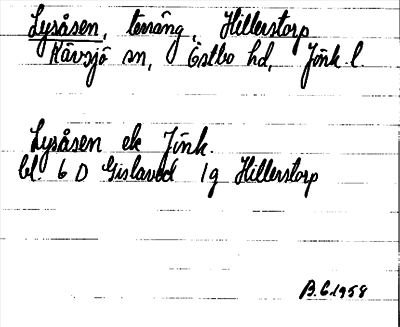 Lysåsen, terräng, Hillerstorp
Kävsjö sn, Östbo hd, Jönk l.
Lysåsen ek Jönk.
bl. 6 D Gislaved 1g Hillerstorp
B.E. 1958